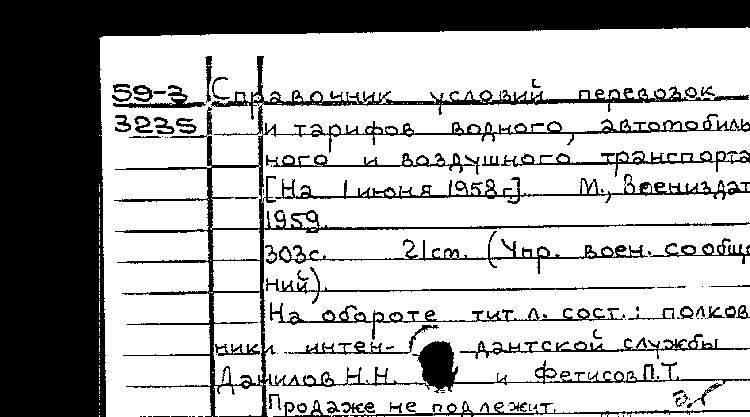 59-3 Справочник условий перевозок
3235 и тарифов водного, автомобиль
ного и воздушного транспорта
[На 1 июня 1958 г.] М., Воениздат
1959.
303с. 21см. (Упр. воен. сообще
ний).
На обороте тит. л. сост.: полков
ники интен- дантской службы
Данилов Н.Н. и Фетисов П.Т.
Продаже не подлежит.